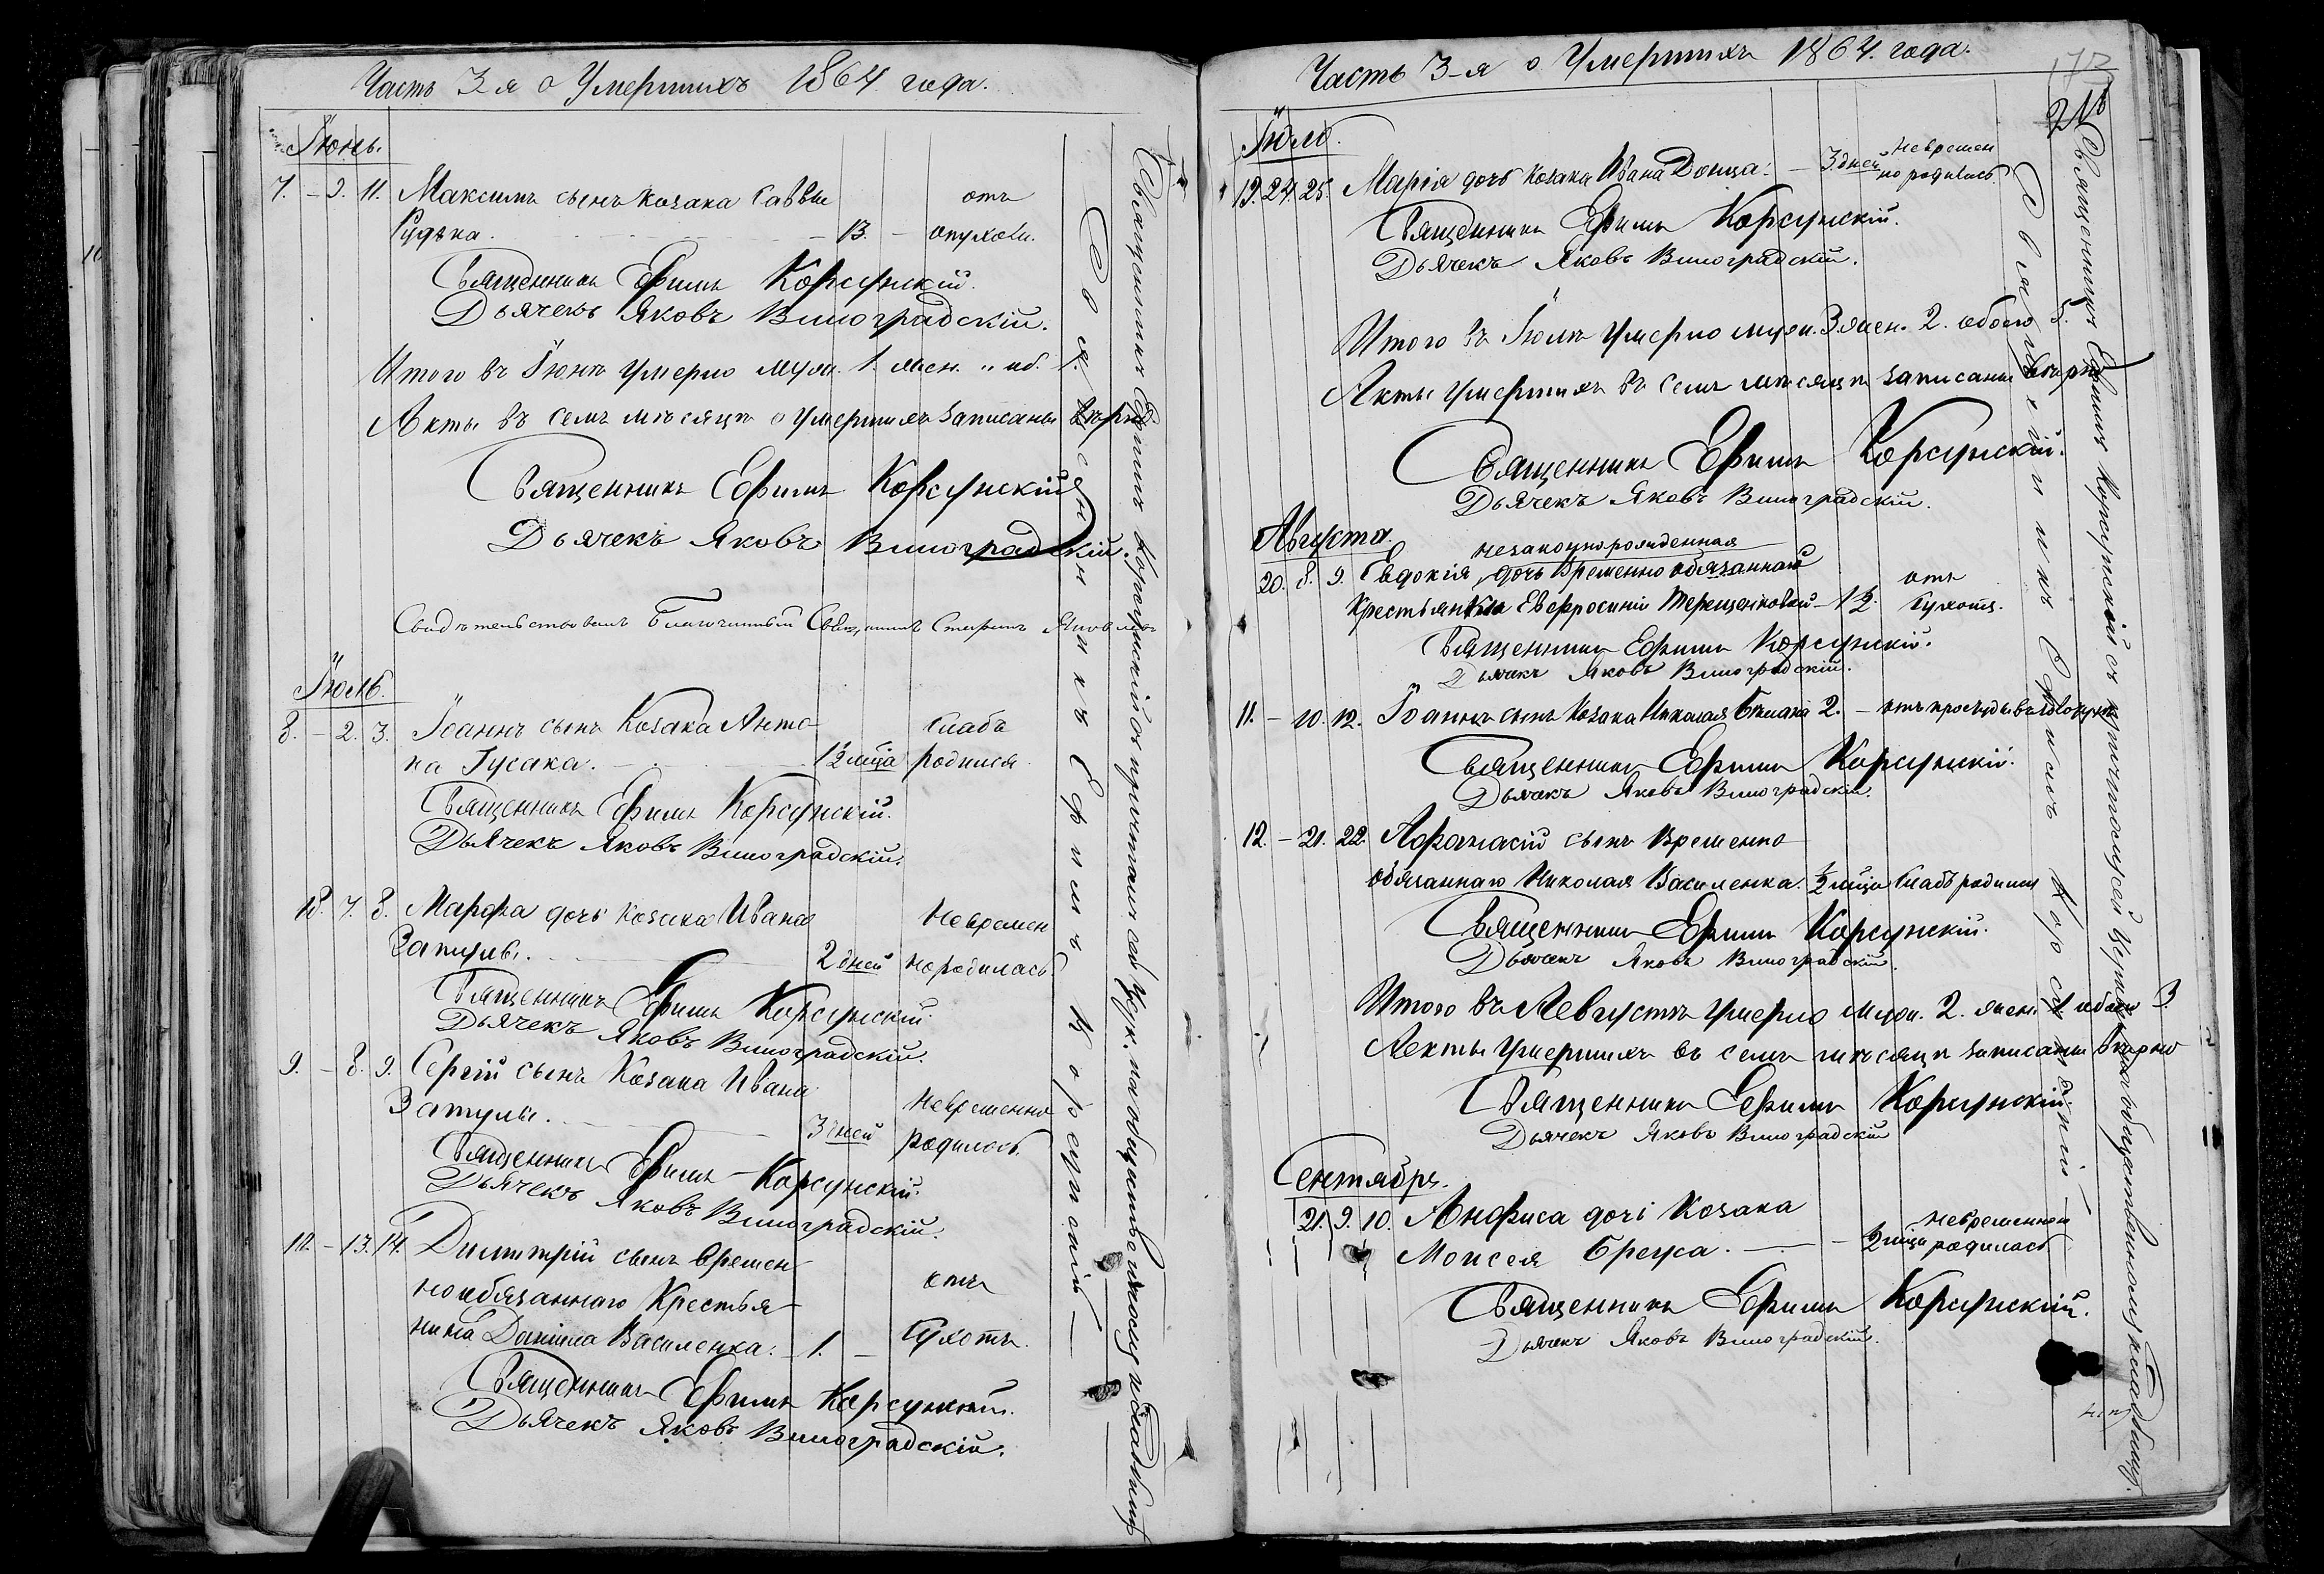 Часть 3-я о Умершихъ 1864. года.
Іюнь.
7. – 9. 11. Максимъ сынъ козака Саввы отъ
Рудька. – 13. – опухоли.
Священникъ Ефимъ Корсунскій.
Дьячекъ Яковъ Виноградскій.
Итого въ Іюнѣ умерло муж. 1. жен. „ об. 1.
Акты въ семъ мѣсяцѣ о умершихъ записаны вѣрно
Священникъ Ефимъ Корсунскій
Дьячекъ Яковъ Виноградскій.
Свидѣтельствовалъ Благочинный Священникъ Стефанъ
Іюль.
8. – 2. 3. Іоаннъ сынъ Козака Анто- слабъ
на Гусака. – 1½ мца родился
Священникъ Ефимъ Корсунскій.
Дьячекъ Яковъ Виноградскій.
18. 7. 8. Марфа дочь козака Ивана Невремен
Затулы. 2 дней но родилась
Священникъ Ефимъ Корсунскій.
Дьячекъ Яковъ Виноградскій.
9. – 8. 9. Сергій сынъ Козака Ивана Невременно
Затулы. 3 дней родилось
Священникъ Ефимъ Корсунскій.
Дьячекъ Яковъ Виноградскій.
10. – 13. 14. Димитрій сынъ времен-
но обязаннаго Крестья- отъ
нина Даніила Василенка. – 1. – Сухотъ.
Священникъ Ефимъ Корсунскій.
Дьячекъ Яковъ Виноградскій.
Священникъ Ефимъ Корсунскій
Священникъ Ефимъ Корсунскій съ причтомъ
Часть 3-я о Умершихъ 1864. года.
Іюль.
19. 24. 25. Марія дочь козака Ивана Донца. – 3 дней Невремен
но родилась.
Священникъ Ефимъ Корсунскій.
Дьячекъ Яковъ Виноградскій.
Итого въ Іюлѣ умерло муж. 3 жен. 2. обоего 5.
Акты умершихъ въ семъ мѣсяцѣ записаны вѣрно
Священникъ Ефимъ Корсунскій.
Дьячекъ Яковъ Виноградскій.
Августа.
незаконнорожденная
20. 8. 9. Евдокія, дочь временно обязанной отъ
крестьянки Евфросиніи Терещенковой – 1½. Сухотъ.
Священникъ Ефимъ Корсунскій.
Дьячекъ Яковъ Виноградскій.
11. – 10. 12. Іоаннъ сынъ Козака Николая 2. –
Священникъ Ефимъ Корсунскій.
Дьячекъ Яковъ Виноградскій.
12. – 21. 22. Афанасій сынъ временно
обязаннаго Николая Василенка. ½ мца Слабъ родился
Священникъ Ефимъ Корсунскій.
Дьячекъ Яковъ Виноградскій.
Итого въ Августѣ умерло муж. 2. жен. 1. обоего 3.
Акты умершихъ въ семъ мѣсяцѣ записаны вѣрно
Священникъ Ефимъ Корсунскій.
Дьячекъ Яковъ Виноградскій
Сентябрь.
21. 9. 10. Анфиса дочь Козака невременно
Моисея – 2 мца родилась
Священникъ Ефимъ Корсунскій.
Дьячекъ Яковъ Виноградскій.
Священникъ Ефимъ Корсунскій
Священникъ Ефимъ Корсунскій съ причтомъ